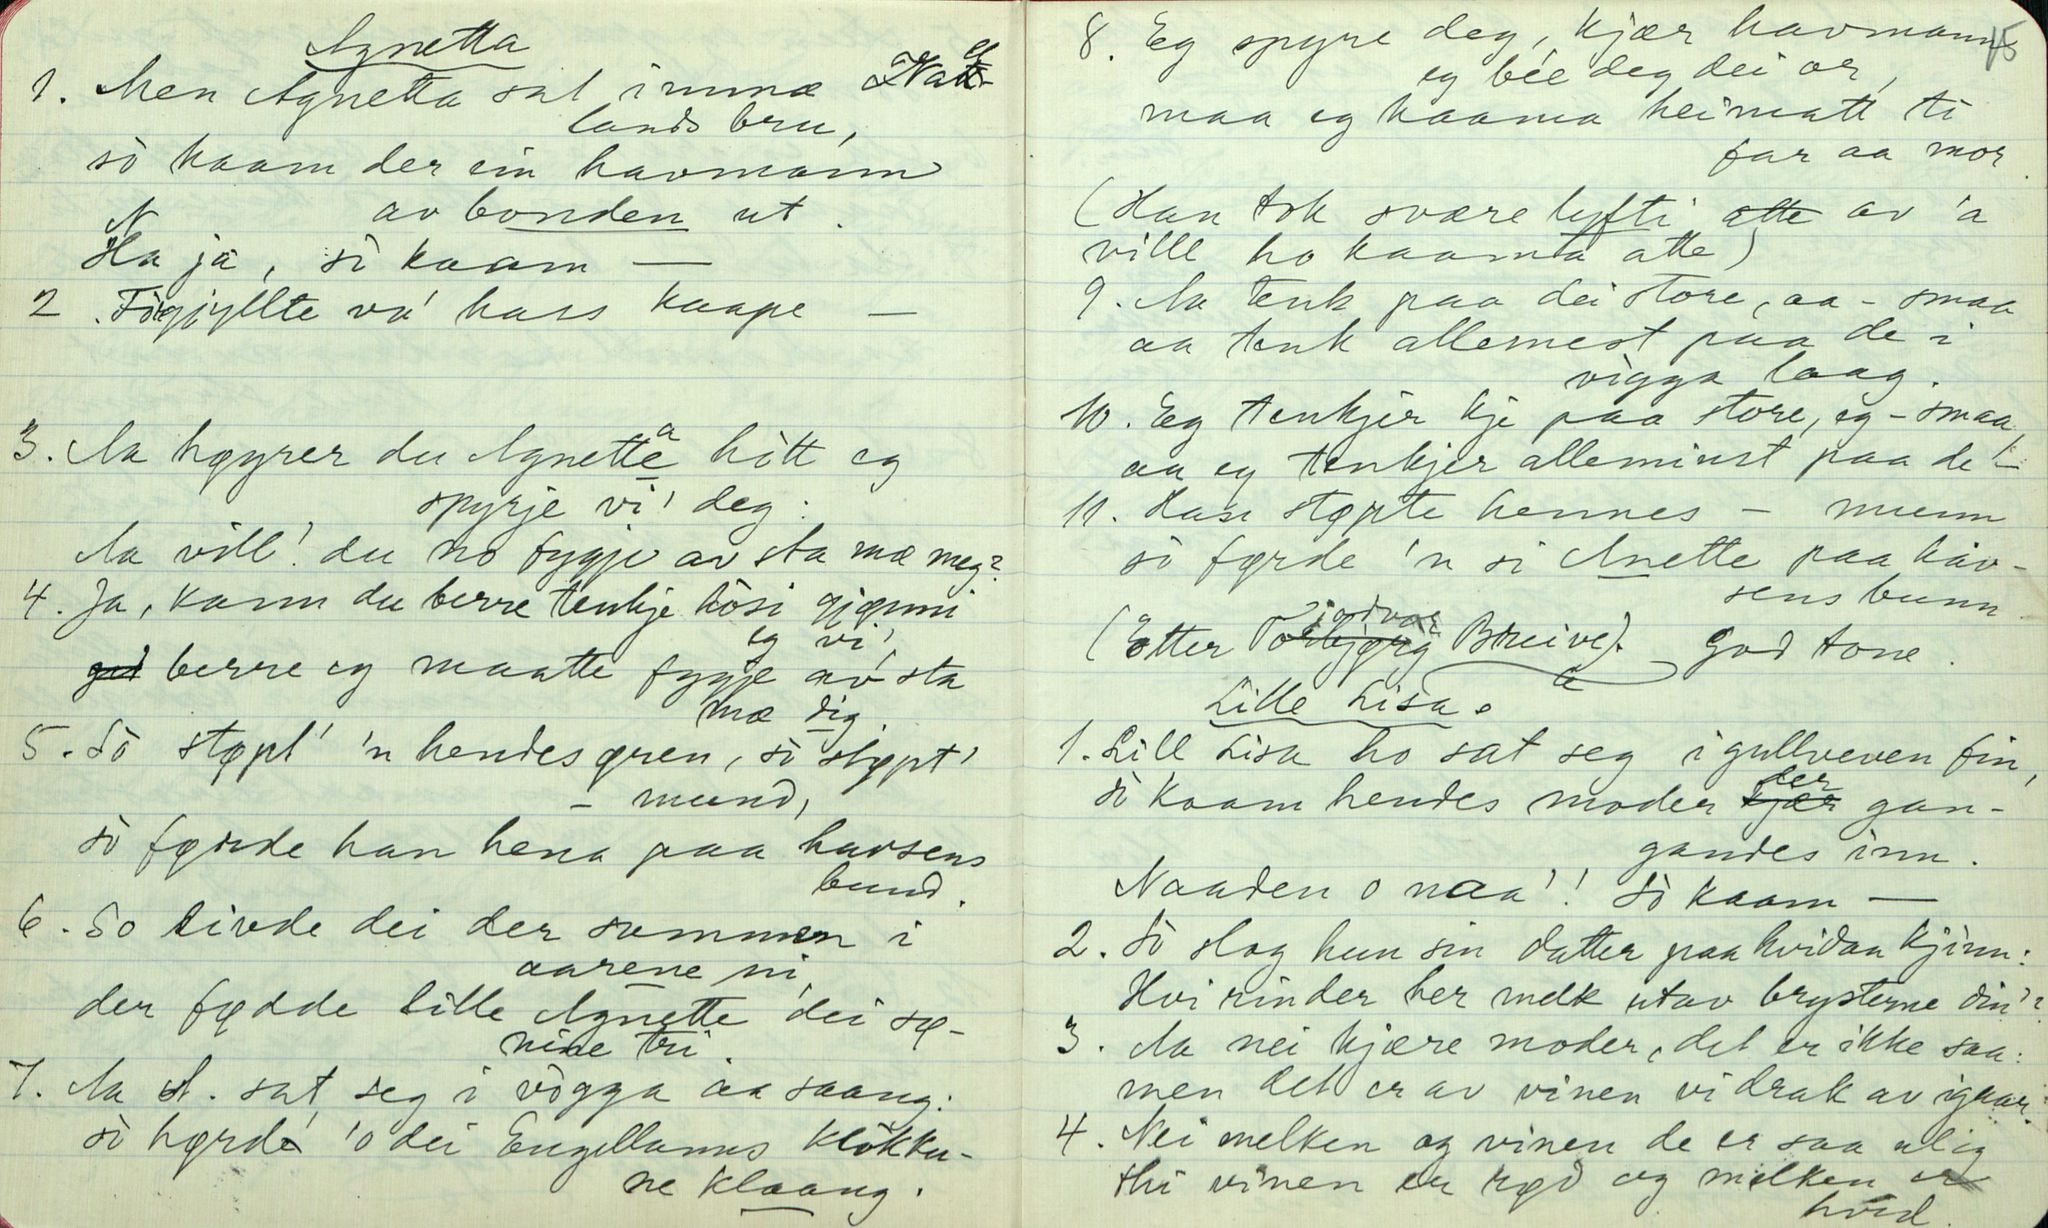 Agnetta
1. Men Agnetta sat innmæ
lands bru,
sò kaam der ein havmann
av bonden ut.
Ha ja, sò kaam —
2. Fògjyllte va' hass kaape —
3. Aa høyrer du Agnetta hòtt eg
spyrje vi' deg:
Aa vill' du no fygje av sta mæ meg?
4. Ja, kann du berre tenkje hòsi gjønni
eg vi',
berre eg maatte fygje av sta
mæ dig.
5. Sò støpt' 'n hendes øren, sò støpt'
– mund,
sò førde han hena paa havsens
bund.
6. So livde dei der sammen i
aarene ni,
der fødde lille Agnette dei sø-
nine tri.
7. Aa A. sat seg i vògga aa saang:
sò hørde 'o dei Engellanns klòkku-
ne klaang.
45
8. Eg spyre deg, kjær havmann
eg bée deg dei or,
maa eg kaama heimatt ti
far aa mor
(Han tok svære lyfti atte av 'a
vill ho kaama atte)
9. Aa tenk paa dei store, aa – smaa
aa tenk allemest paa de i
vògga laag.
10. Eg tenkjer kje paa store, eg – smaa,
aa eg tenkjer alleminst paa de –
11. Han støpte hennes – munn
sò førde 'n si Anette paa hav-
sens bunn
(Etter Breive). God tone.
Lille Lisa.
1. Lill Lisa ho sat seg i gullveven fin,
sò kaam hendes moder der gan-
gandes inn.
Naaden o naa'! Sò kaam —
2. Sò slog hun sin datter paa hvidan kjinn:
Hvi rinder her melk utav brysterne din'?
3. Aa nei kjære moder, det er ikke saa:
men det er av vinen vi drak av igaar.
4. Nei melken og vinen de er saa ulig
thi vinen er rød og melken er
hvid.